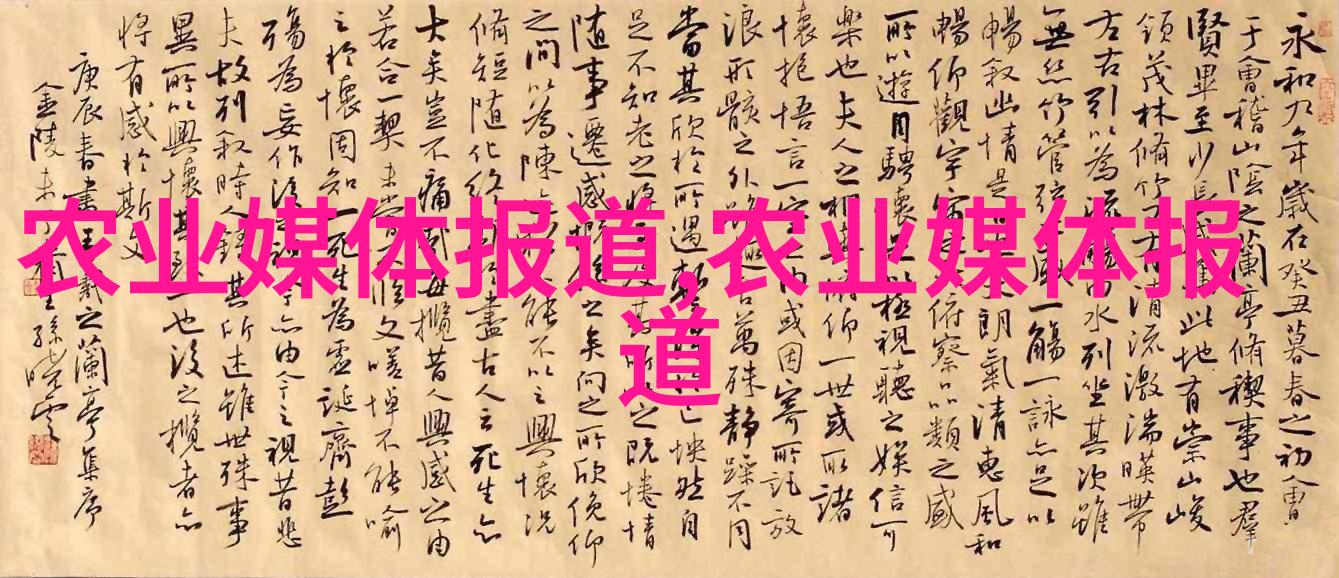 农业媒体报道,农业媒体报
道
永和九年歲在癸丑暮春之初會
于會稽山陰之蘭亭脩稧事也群
賢畢至少長咸集此地有崇山峻
領茂林脩竹又有清流激湍暎帶
左右引以為流觴曲水列坐其次雖
無絲竹管弦之盛一觴一詠亦足以
暢叙幽情是日也天朗氣清惠風和
暢仰觀宇宙之大俯察品類之盛
所以遊目騁懷足以極視聽之娛信可
樂也夫人之相與俯仰一世或取諸
懷抱悟言一室之內或因寄所託放
浪形骸之外雖趣舍萬殊靜躁不同
當其欣於所遇暫得於己怏然自
足不知老之將至及其所之既惓情
随事遷感慨係之矣向之所欣俛仰
之間以為陳迹猶不能不以之興懷況
脩短随化終期於盡古人云死生亦
大矣豈不痛哉每攬昔人興感之由
若合一契未嘗不臨文嗟悼不能喻
之於懷固知一死生為虛誕齊彭
殤為妄作後之視今亦由今之視昔悲
夫故列叙時人錄其所述雖世殊事
異所以興懷其致一也後之攬者亦
將有感於斯文
庚辰春書王羲之蘭亭集序
金陵孫曉雲